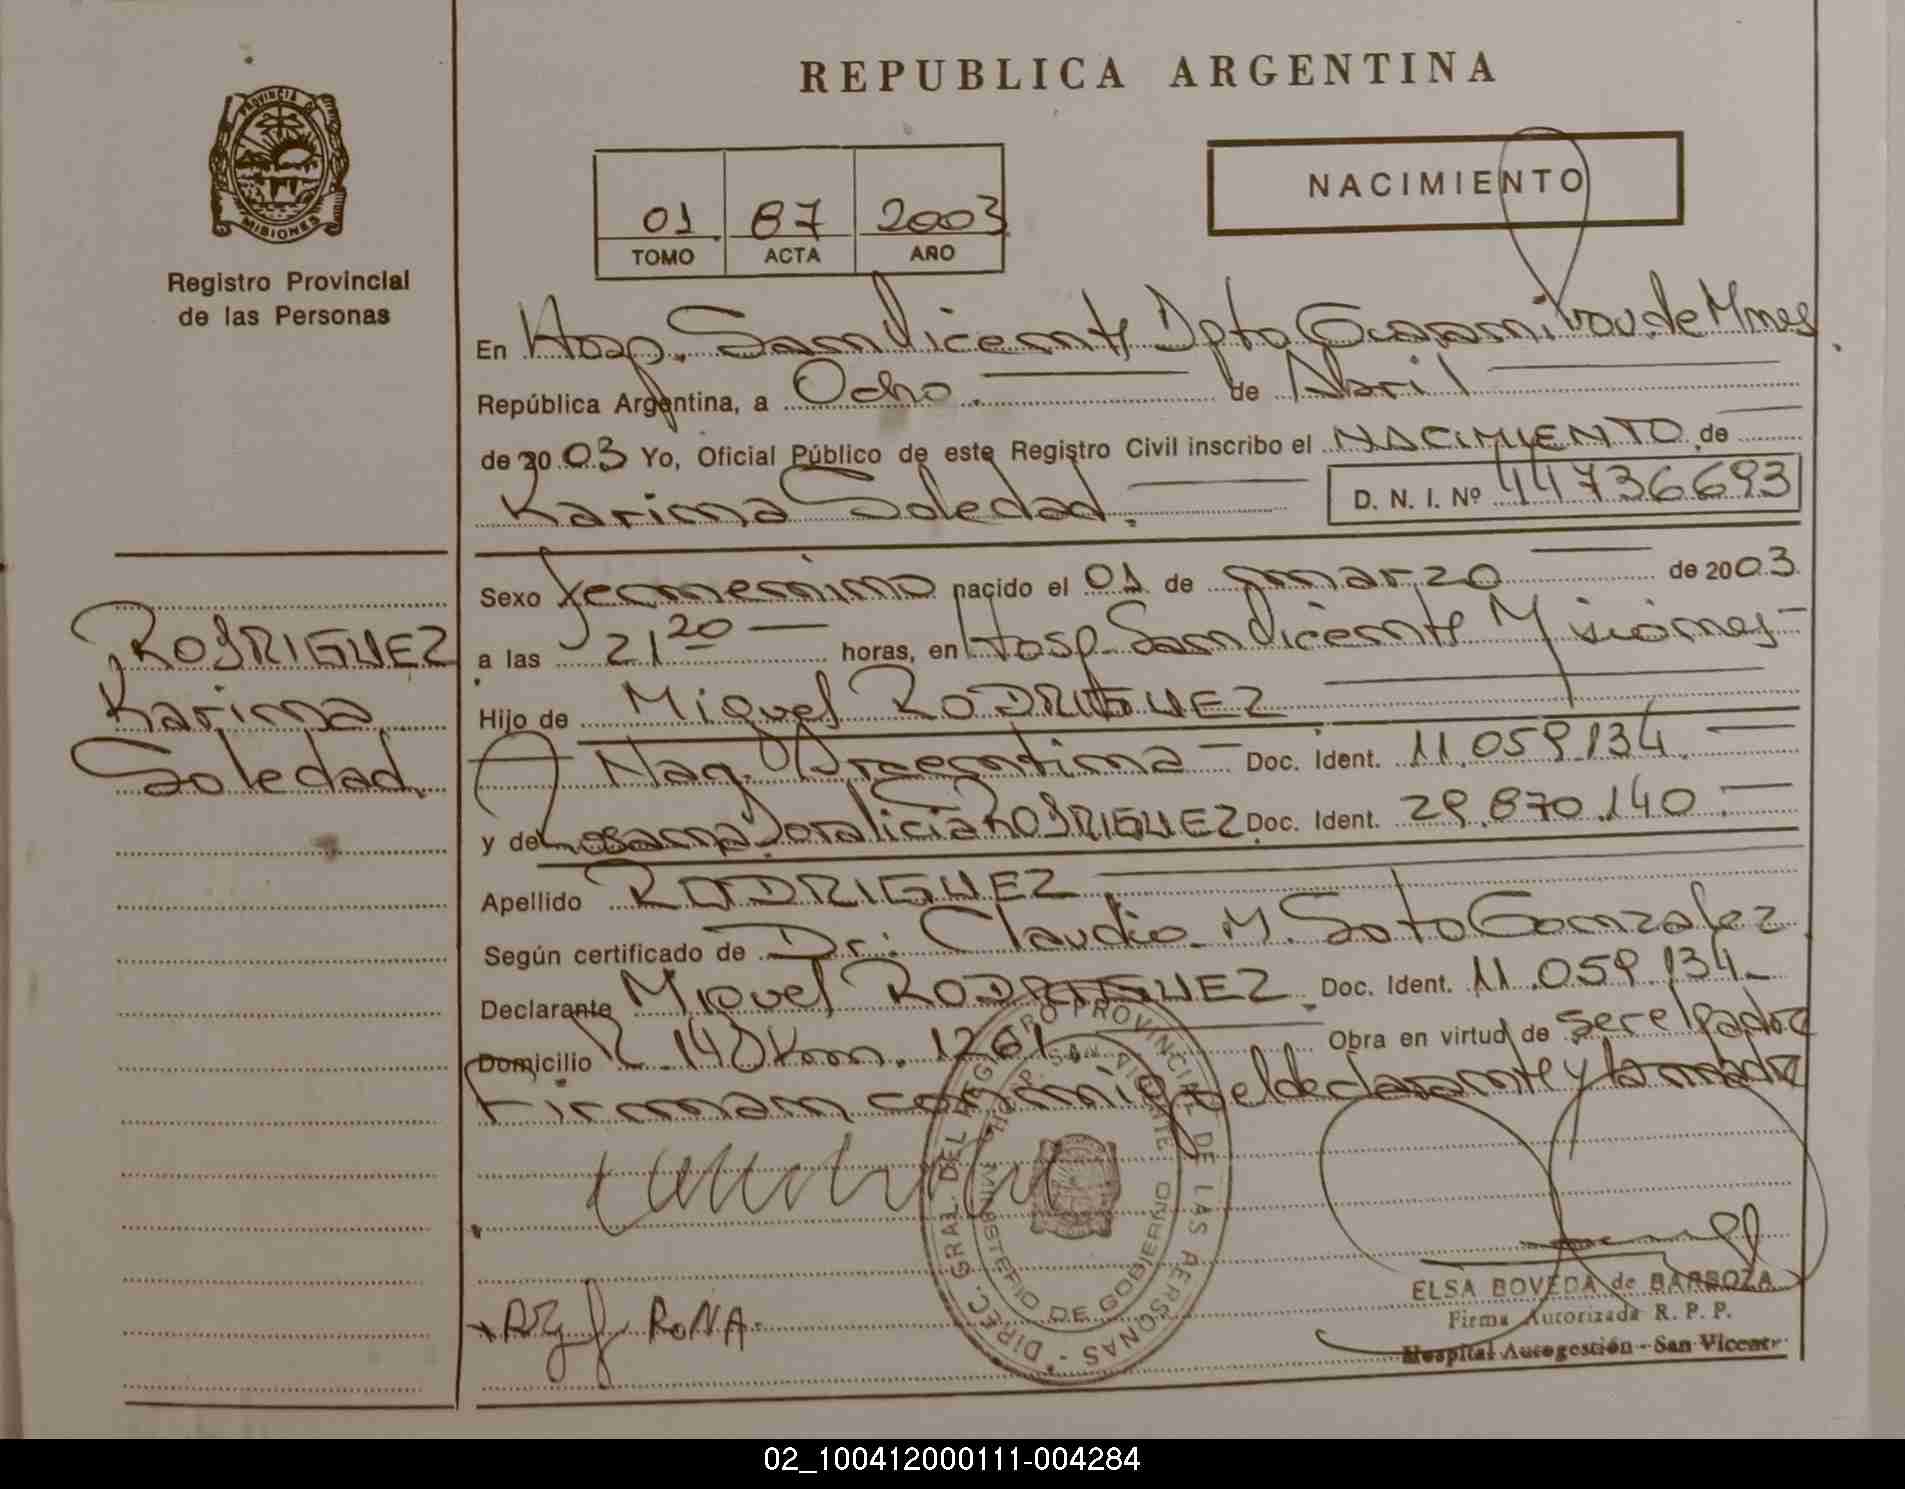 REPUBLICA ARGENTINA
PROVINCIA DE
MISIONES
Registro Provincial
de las Personas
01 87 2003
TOMO ACTA AÑO
NACIMIENTO
En Hosp. San Vicente Dpto Guarani Prov. de Mnes
República Argentina, a Ocho. de Abril
de 2003 Yo, Oficial Público de este Registro Civil inscribo el NACIMIENTO de
Karina Soledad. D. N. I. Nº 44736693
RODRIGUEZ
Karina
Soledad
Sexo femenino nacido el 01 de marzo de 2003
a las 21 20 horas, en Hosp. San Vicente Misiones
Hijo de Miguel RODRIGUEZ
Nac. Argentina Doc. Ident. 11.059.134
y de RODRIGUEZ Doc. Ident. 29.870.140
Apellido RODRIGUEZ
Según certificado de Dr. Claudio M. Soto Gonzalez
Declarante Miguel RODRIGUEZ Doc. Ident. 11.059.134
Domicilio Km. 1261. Obra en virtud de ser el padre
Firman conmigo el declarante y la madre
DIREC. GRAL. DEL REGISTRO PROVINCIAL DE LAS PERSONAS
HOSP. SAN VICENTE
MINISTERIO DE GOBIERNO
ELSA BOVEDA de BARBOZA
Firma Autorizada R. P. P.
Hospital Autogestión - San Vicente
02_100412000111-004284